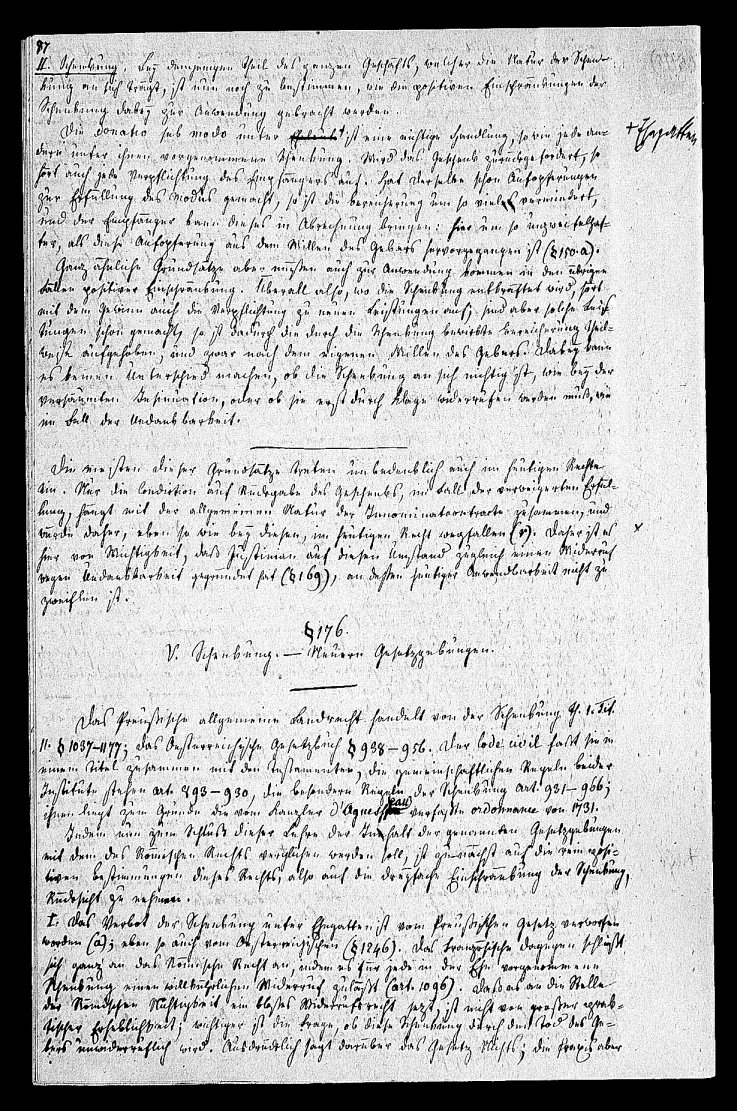 87
II. Schenkung. Bey demjenigen Theil des ganzen Geschäfts, welcher die Natur der Schen-
kung an sich trägt, ist nun noch zu bestimmen, wie die positiven Einschränkungen der
Schenkung dabey zur Anwendung gebracht werden.
Die donatio sub modo unter + ist eine nichtige Handlung, so wie jede an-
+ Ehegatten
dere unter ihnen vorgenommene Schenkung. Wird das Geschenk zurückgefordert, so
hört auch jede Verpflichtung des Empfängers auf. Hat derselbe schon Aufopferungen
zur Erfüllung des Modus gemacht, so ist die Bereicherung um so vieles vermindert,
und der Empfänger kann dieses in Abrechnung bringen: hier um so unzweifelhaf-
ter, als diese Aufopferung aus dem Willen des Gebers hervorgegangen ist (§ 150.a).
Ganz ähnliche Grundsätze aber müssen auch zur Anwendung kommen in den übrigen
Fällen positiver Einschränkung. Überall also, wo die Schenkung entkräftet wird, hört
mit dem Gewinn auch die Verpflichtung zu neuen Leistungen auf; sind aber solche Leis-
tungen schon gemacht, so ist dadurch die durch die Schenkung bewirkte Bereicherung theil-
weise aufgehoben, und zwar nach dem eigenen Willen des Gebers. Dabey kann
es keinen Unterschied machen, ob die Schenkung an sich nichtig ist, wie bey der
versäumten Insinuation, oder ob sie erst durch Klage widerrufen werden muß, wie
im Fall der Undankbarkeit.
Die meisten dieser Grundsätze treten unbedenklich auch im heutigen Rechte
ein. Nur die Condiction auf Rückgabe des Geschenks, im Fall der verweigerten Erfül-
lung, hängt mit der allgemeinen Natur der Innominatcontracte zusammen, und
würde daher, eben so wie bey diesen, im heutigen Recht wegfallen (v). Daher ist es
x
hier von Wichtigkeit, daß Justinian auf diesen Umstand zugleich einen Widerruf
wegen Undankbarkeit gegründet hat (§ 169), an dessen heutiger Anwendbarkeit nicht zu
zweifeln ist.
§ 176.
V. Schenkung. — Neuere Gesetzgebungen.
Das Preußische allgemeine Landrecht handelt von der Schenkung Th. 1. Tit.
11. § 1037–1177; das Oesterreichische Gesetzbuch § 938–956. Der Code civil faßt sie in
einem Titel zusammen mit den Testamenten, die gemeinschaftlichen Regeln beider
Institute stehen art. 893–930, die besondern Regeln der Schenkung art. 931–966;
ihnen liegt zum Grunde die vom Kanzler d'Aguesseau verfaßte ordonnance von 1731.
Indem nun zum Schluß dieser Lehre der Inhalt der genannten Gesetzgebungen
mit dem des Römischen Rechts verglichen werden soll, ist zunächst auf die rein posi-
tiven Bestimmungen dieses Rechts, also auf die dreyfache Einschränkung der Schenkung,
Rücksicht zu nehmen.
I. Das Verbot der Schenkung unter Ehegatten ist vom Preußischen Gesetz verworfen
worden (a); eben so auch vom Oesterreichischen (§ 1246). Das Französische dagegen schließt
sich ganz an das Römische Recht an, indem es für jede in der Ehe vorgenommene
Schenkung einen willkührlichen Widerruf zuläßt (art. 1096). Daß es an die Stelle
der Römischen Nichtigkeit ein bloßes Widerrufsrecht setzt, ist nicht von großer prak-
tischer Erheblichkeit; wichtiger ist die Frage, ob diese Schenkung durch den Tod des Ge-
bers unwiderruflich wird. Ausdrücklich sagt darüber das Gesetz Nichts; die Praxis aber